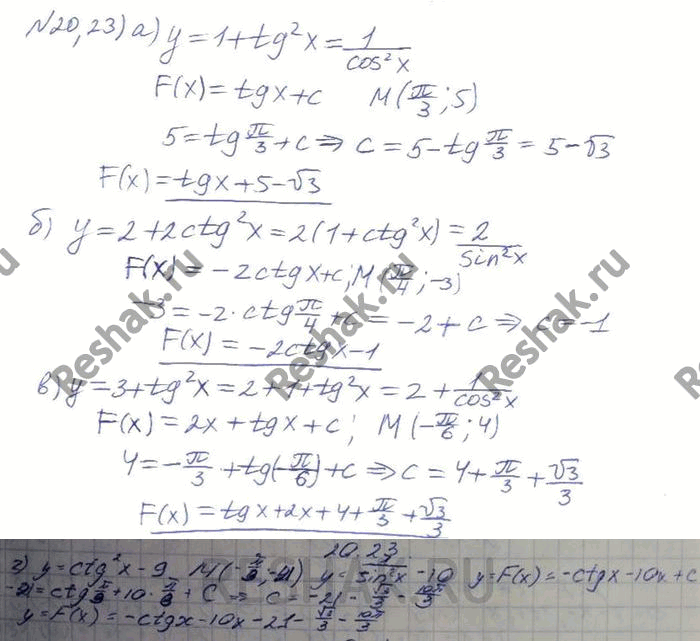 №20,23) а) y = 1 + tg²x = 1/cos²x
F(x) = tgx + c M(π/3; 5)
5 = tg π/3 + c ⇒ c = 5 - tg π/3 = 5 - √3
F(x) = tgx + 5 - √3
б) y = 2 + 2ctg²x = 2(1 + ctg²x) = 2/sin²x
F(x) = -2ctgx + c; M(π/4; -3)
-3 = -2 · ctg π/4 + c = -2 + c ⇒ c = -1
F(x) = -2ctgx - 1
в) y = 3 + tg²x = 2 + 1 + tg²x = 2 + 1/cos²x
F(x) = 2x + tgx + c; M(-π/6; 4)
4 = -π/3 + tg(-π/6) + c ⇒ c = 4 + π/3 + √3/3
F(x) = tgx + 2x + 4 + π/3 + √3/3
20.23
г) y = ctg²x - 9 y = 1/sin²x - 10 y = F(x) = -ctgx - 10x + c
y = F(x) = -ctgx - 10x - 21 - √3/3 - 10π/3
Reshak.ru
Reshak.ru
Reshak.ru